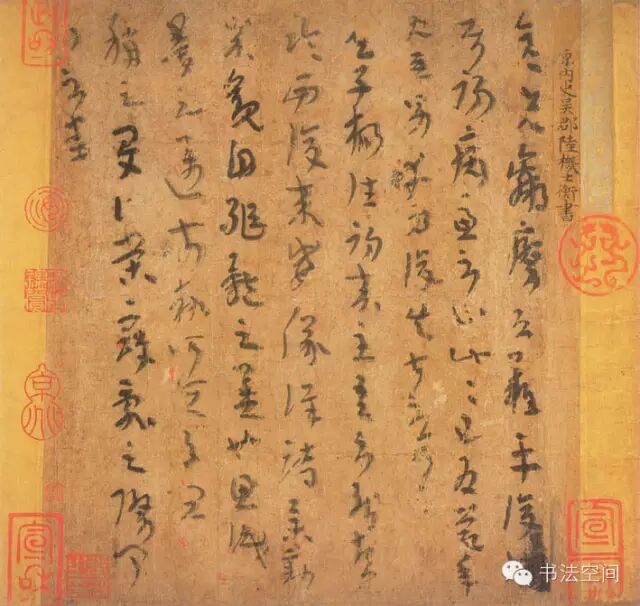 原內史吳郡陸機士衡書
彥先羸瘵恐難平復
初病慮不止此此已為慶承
使唯男幸為復失前憂耳
子楊往初來主吾不能盡
臨西復來威儀詳跱舉動
成觀自軀體之美也思識
量之邁前執所恒有宜
稱之夏伯榮寇亂之際聞
問不悉
宣和
书法空间